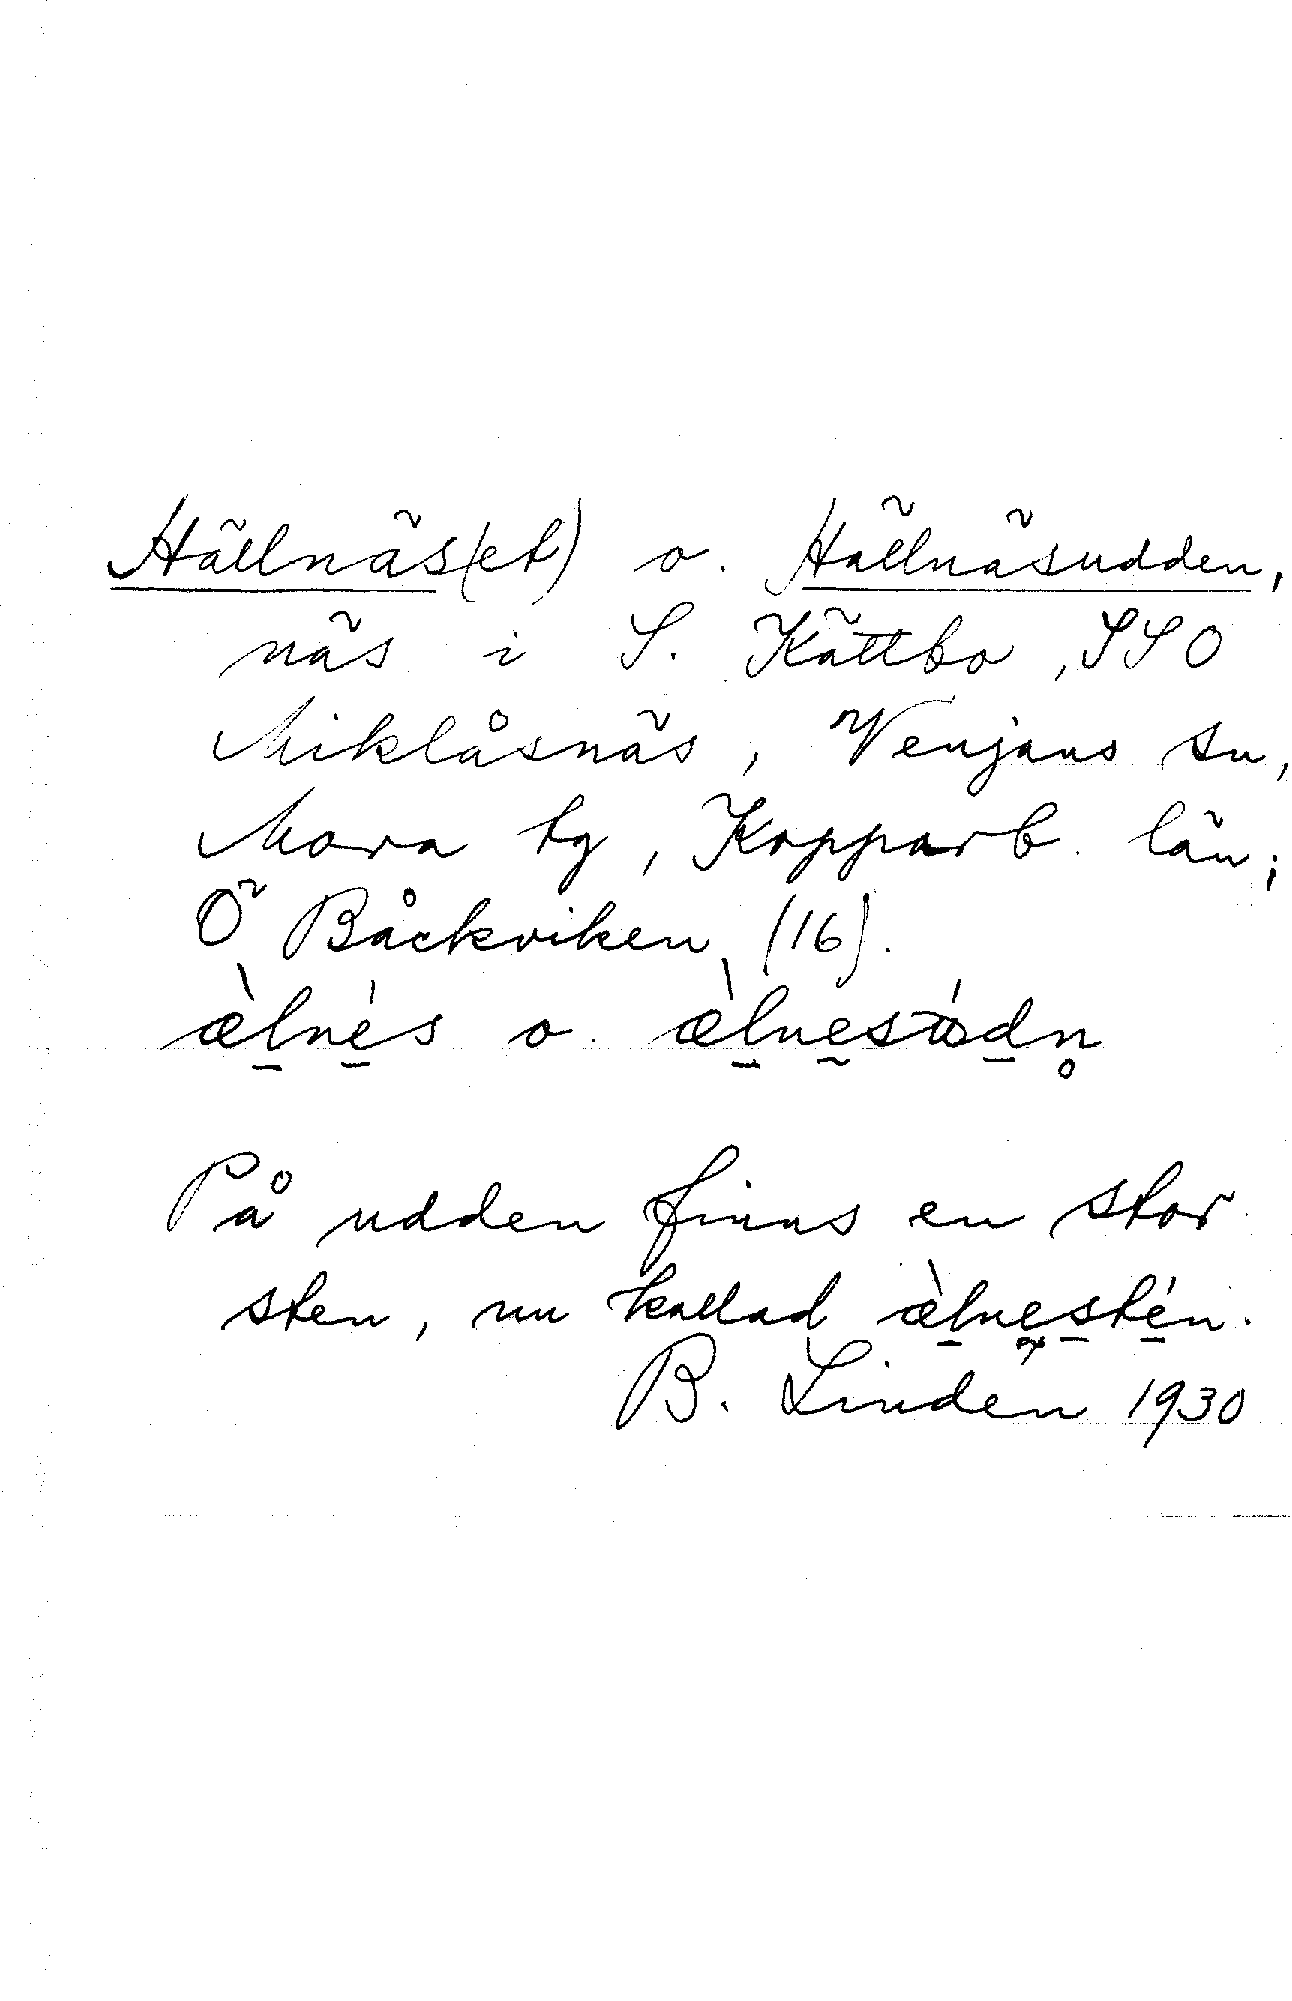 Hällnäs(et) o. Hällnäsudden,
näs i S. Kättbo, SSO
Miklåsnäs, Venjans sn,
Mora tg, Kopparb. län;
Ö Båckviken (16).
æ̀l̠né̠s o. æ̀l̠ne̠sɷ́d̠n̥
På udden finns en stor
sten, nu kallad æ̀l̠ne̠s̠té̠n.
B. Lindén 1930